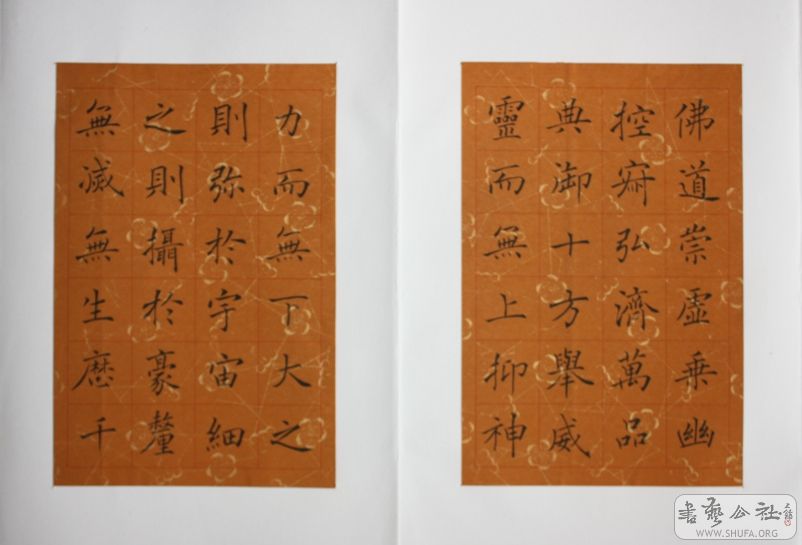 佛道崇虛乗幽
控寂弘濟萬品
典御十方舉威
靈而無上抑神
力而無下大之
則弥於宇宙細
之則攝於豪釐
無滅無生歷千
書藝公社
WWW.SHUFA.ORG